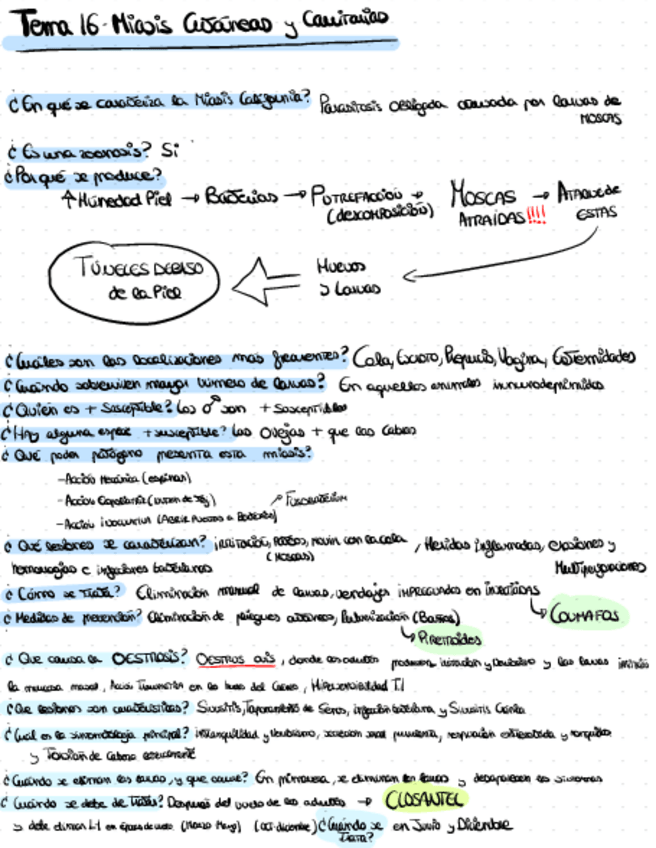 Tema 16 - Miasis Cutáneas y Cavitarias
¿En qué se caracteriza la Miasis Caligunia? Parasitosis obligada causada por larvas de
MOSCAS
¿Es una zoonosis? Si
¿Por qué se produce?
↑ Humedad Piel → Bacterias → PUTREFACCIÓN → MOSCAS → ATAQUE de
(descomposición) ATRAÍDAS!!!! ESTAS
TÚNELES DEBAJO HUEVOS
de la Piel y Larvas
¿Cuáles son las localizaciones más frecuentes? Cola, Escroto, Prepucio, Vagina, Extremidades
¿Cuándo sobreviven mayor número de larvas? En aquellos animales inmunodeprimidos
¿Quién es + Susceptible? Los ♂ son + Susceptibles
¿Hay alguna especie + susceptible? Las Ovejas + que las Cabras
¿Qué poder patógeno presenta esta miasis?
- Acción Mecánica (espinas)
- Acción Expoliatriz
- Acción inoculativa (Abrir Puertas a Bacterias)
¿Qué lesiones se caracterizan? irritación, movin con la cola, Heridas inflamadas, erosiones y
(Moscas)
hemorragias e infecciones bacterianas Multiperforaciones
¿Cómo se Trata? Eliminación manual de larvas, vendajes IMPREGNADOS en Insecticidas
↳ COUMAFOS
¿Medidas de prevención? Eliminación de pliegues cutáneos, Pulverización (Baños)
↳ PIRETROIDES
¿Que causa la OESTROSIS? OESTRUS OVIS, donde los adultos producen irritación y y las larvas irritación
la mucosa nasal, Acción en los del Cráneo, Hipersensibilidad T.I
¿Que lesiones son características? Sinusitis, Taponamiento de Senos, infección bacteriana y Sinusitis
¿Cuál es la sintomatología principal? intranquilidad y, secreción nasal purulenta, respiración y ronquidos
y Torsión de Cabeza
¿Cuándo se eliminan las larvas, y que causa? En primavera, se eliminan las larvas y desaparecen los síntomas
¿Cuándo se debe de Tratar? Despues del vuelo de los adultos → CLOSANTEL
y debe eliminar L-1 en épocas de vuelo (Marzo Mayo) (oct-diciembre) ¿Cuándo se en Junio y Diciembre
Trata?